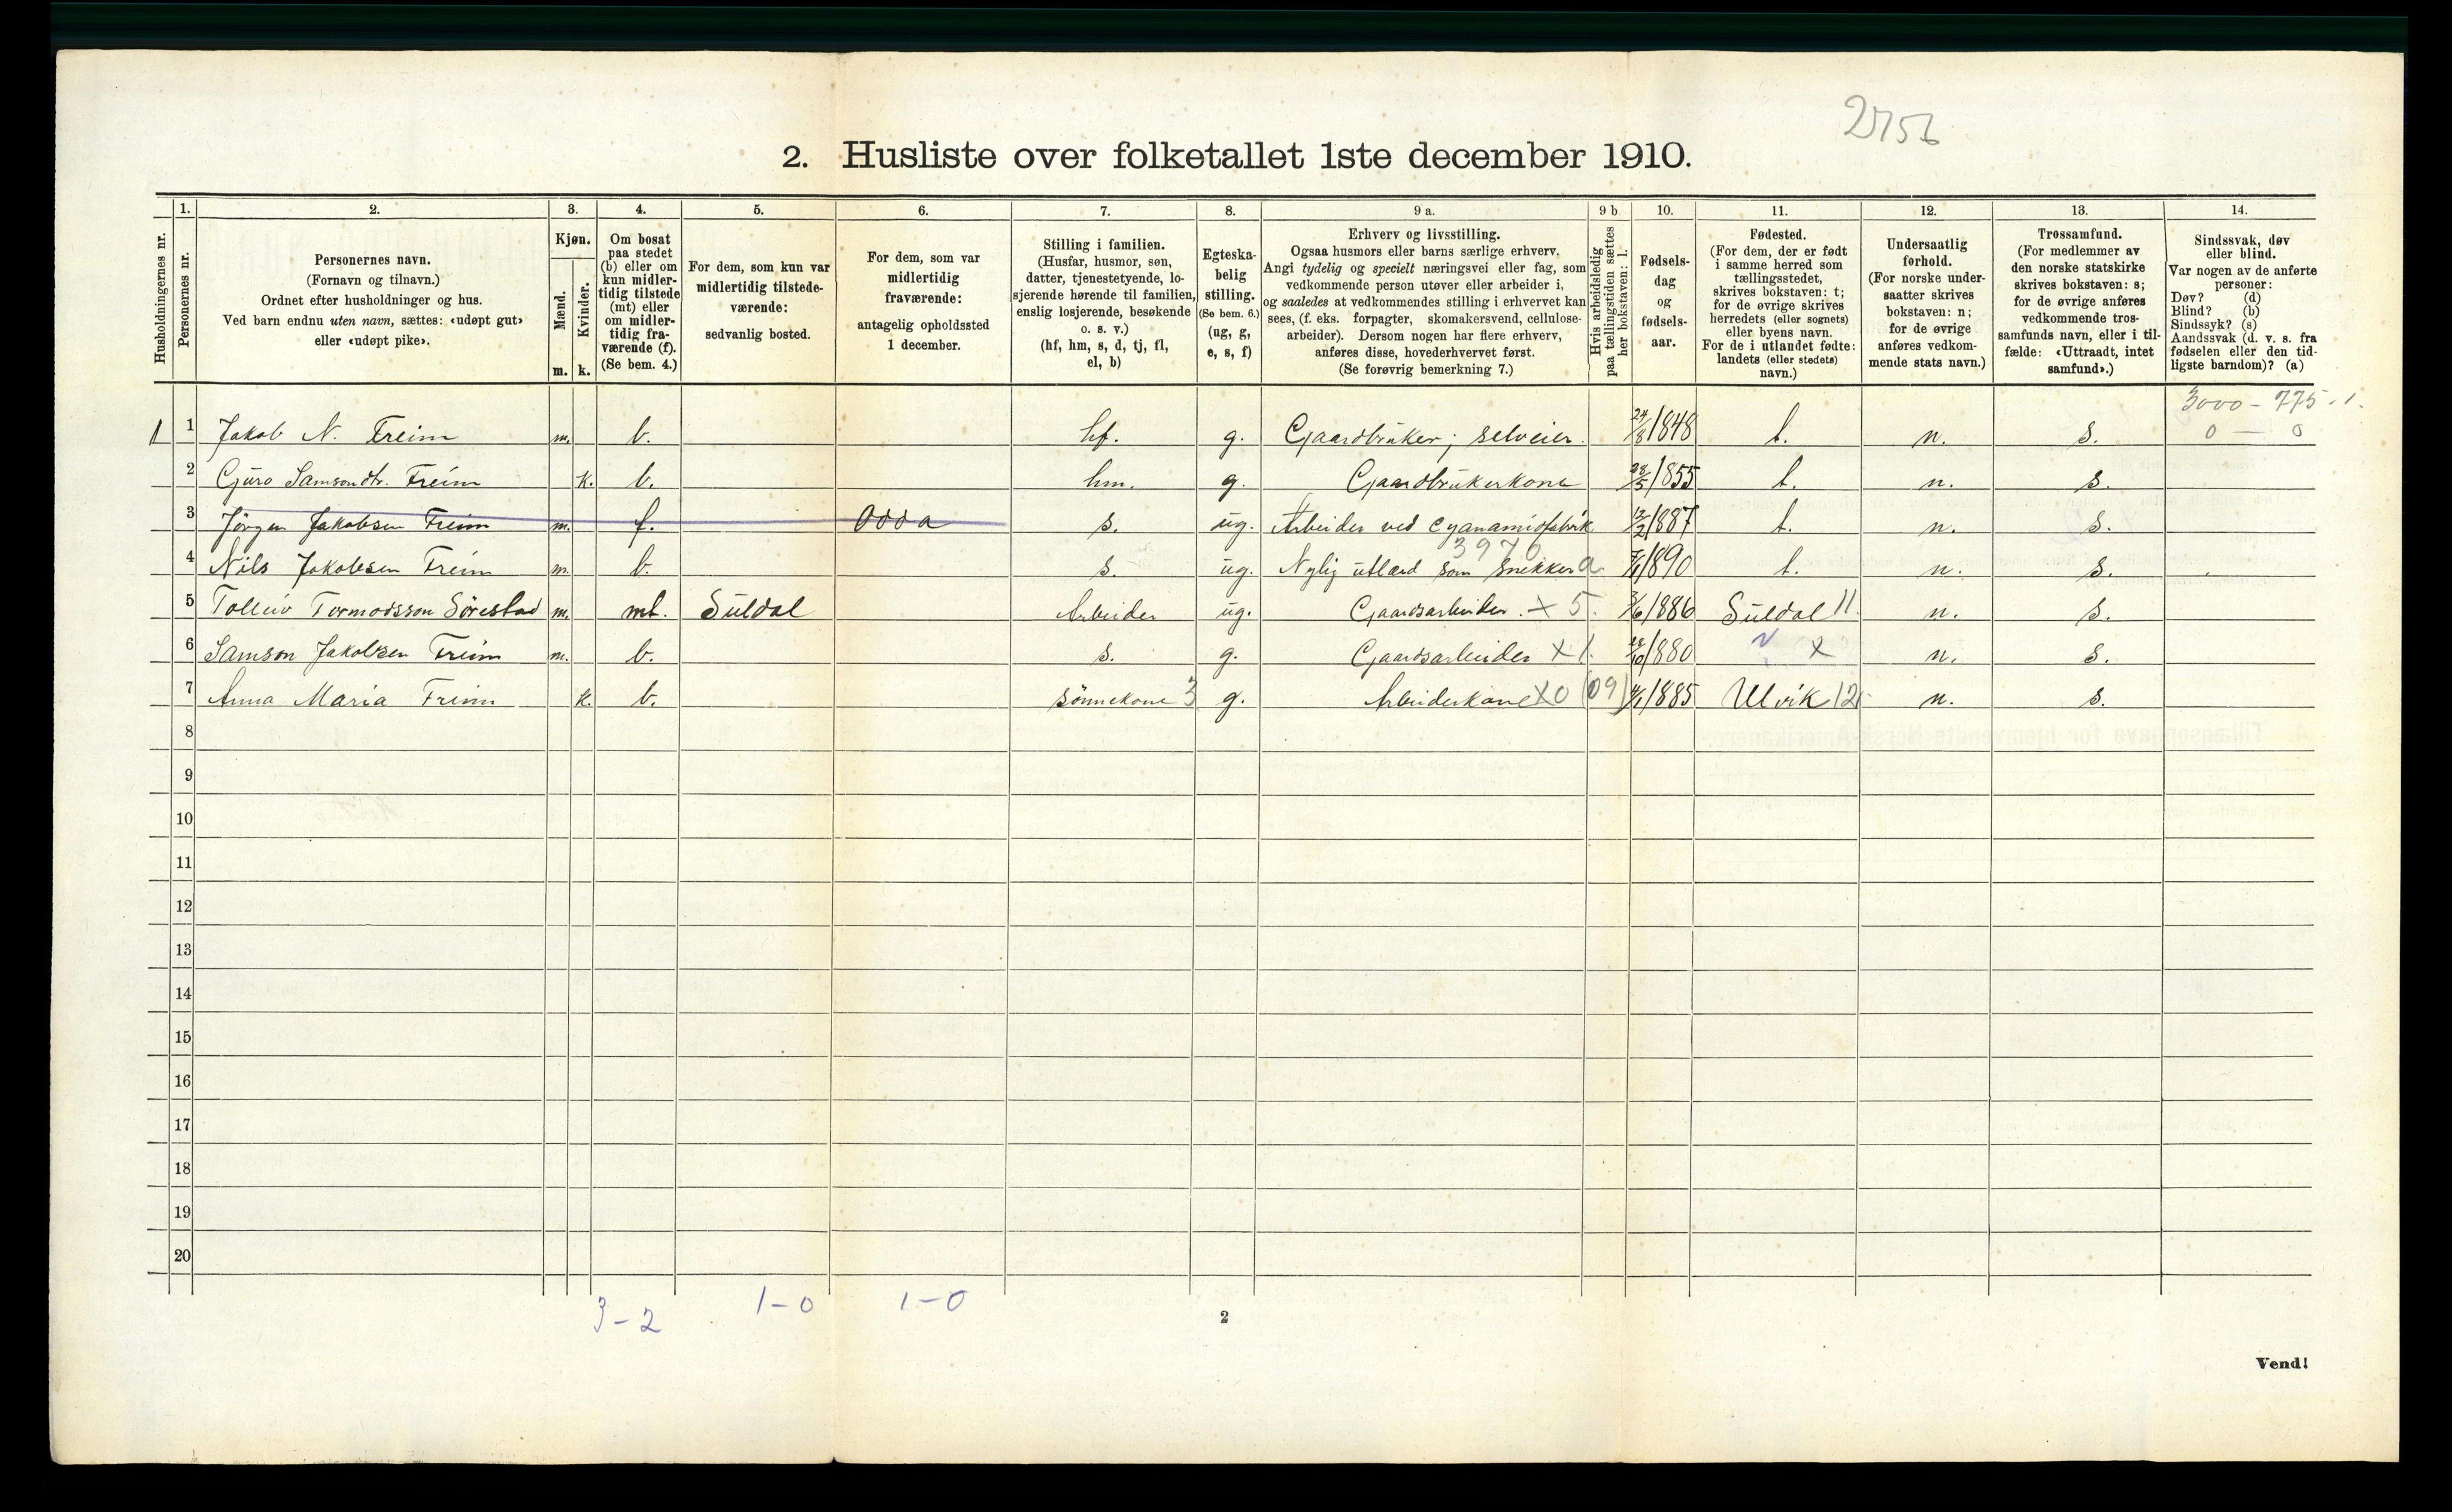 2756
2. Husliste over folketallet 1ste december 1910.
Husholdningernes nr.
1. Personernes nr.
2. Personernes navn.
(Fornavn og tilnavn.)
Ordnet efter husholdninger og hus.
Ved barn endnu uten navn, sættes: «udøpt gut»
eller «udøpt pike».
3. Kjøn.
Mænd. m.
Kvinder. k.
4. Om bosat
paa stedet
(b) eller om
kun midler-
tidig tilstede
(mt) eller
om midler-
tidig fra-
værende (f).
(Se bem. 4.)
5. For dem, som kun var
midlertidig tilstede-
værende:
sedvanlig bosted.
6. For dem, som var
midlertidig
fraværende:
antagelig opholdssted
1 december.
7. Stilling i familien.
(Husfar, husmor, søn,
datter, tjenestetyende, lo-
sjerende hørende til familien,
enslig losjerende, besøkende
o. s. v.)
(hf, hm, s, d, tj, fl,
el, b)
8. Egteska-
belig
stilling.
(Se bem. 6.)
(ug, g,
e, s, f)
9 a. Erhverv og livsstilling.
Ogsaa husmors eller barns særlige erhverv.
Angi tydelig og specielt næringsvei eller fag, som
vedkommende person utøver eller arbeider i,
og saaledes at vedkommendes stilling i erhvervet kan
sees, (f. eks. forpagter, skomakersvend, cellulose-
arbeider). Dersom nogen har flere erhverv,
anføres disse, hovederhvervet først.
(Se forøvrig bemerkning 7.)
9 b. Hvis arbeidsledig
paa tællingstiden sættes
her bokstaven: l.
10. Fødsels-
dag
og
fødsels-
aar.
11. Fødested.
(For dem, der er født
i samme herred som
tællingsstedet,
skrives bokstaven: t;
for de øvrige skrives
herredets (eller sognets)
eller byens navn.
For de i utlandet fødte:
landets (eller stedets)
navn.)
12. Undersaatlig
forhold.
(For norske under-
saatter skrives
bokstaven: n;
for de øvrige
anføres vedkom-
mende stats navn.)
13. Trossamfund.
(For medlemmer av
den norske statskirke
skrives bokstaven: s;
for de øvrige anføres
vedkommende tros-
samfunds navn, eller i til-
fælde: «Uttraadt, intet
samfund».)
14. Sindssvak, døv
eller blind.
Var nogen av de anførte
personer:
Døv? (d)
Blind? (b)
Sindssyk? (s)
Aandssvak (d. v. s. fra
fødselen eller den tid-
ligste barndom)? (a)
3000 - 775 - 1.
1 1 Jakob N. Freim m. b. hf. g. Gaardbruker; selveier. 24/8 1848 t. n. s. 0 — 0
2 Guro Samsondtr. Freim k. b. hm. g. Gaardbrukerkone 28/5 1855 t. n. s.
3 Jörgen Jakobsen Freim m. f. Odda s. ug. Arbeider ved Cyanamidfabrik 12/2 1887 t. n. s.
3970
4 Nils Jakobsen Freim m. b. s. ug. Nylig utlærd som snekker a 1890 t. n. s.
5 Tolleiv Tormodsson Sörestad m. mt. Suldal Arbeider ug. Gaardsarbeider. x 5. 3/6 1886 Suldal 11. n. s.
6 Samson Jakobsen Freim m. b. s. g. Gaardsarbeider x 1. 28/10 1880 x n. s.
7 Anna Maria Freim k. b. sönnekone 3 g. Arbeiderkone x0 (09) 1885 Ulvik 12 n. s.
8
9
10
11
12
13
14
15
16
17
18
19
20
3-2 1-0 1-0
2
Vend!